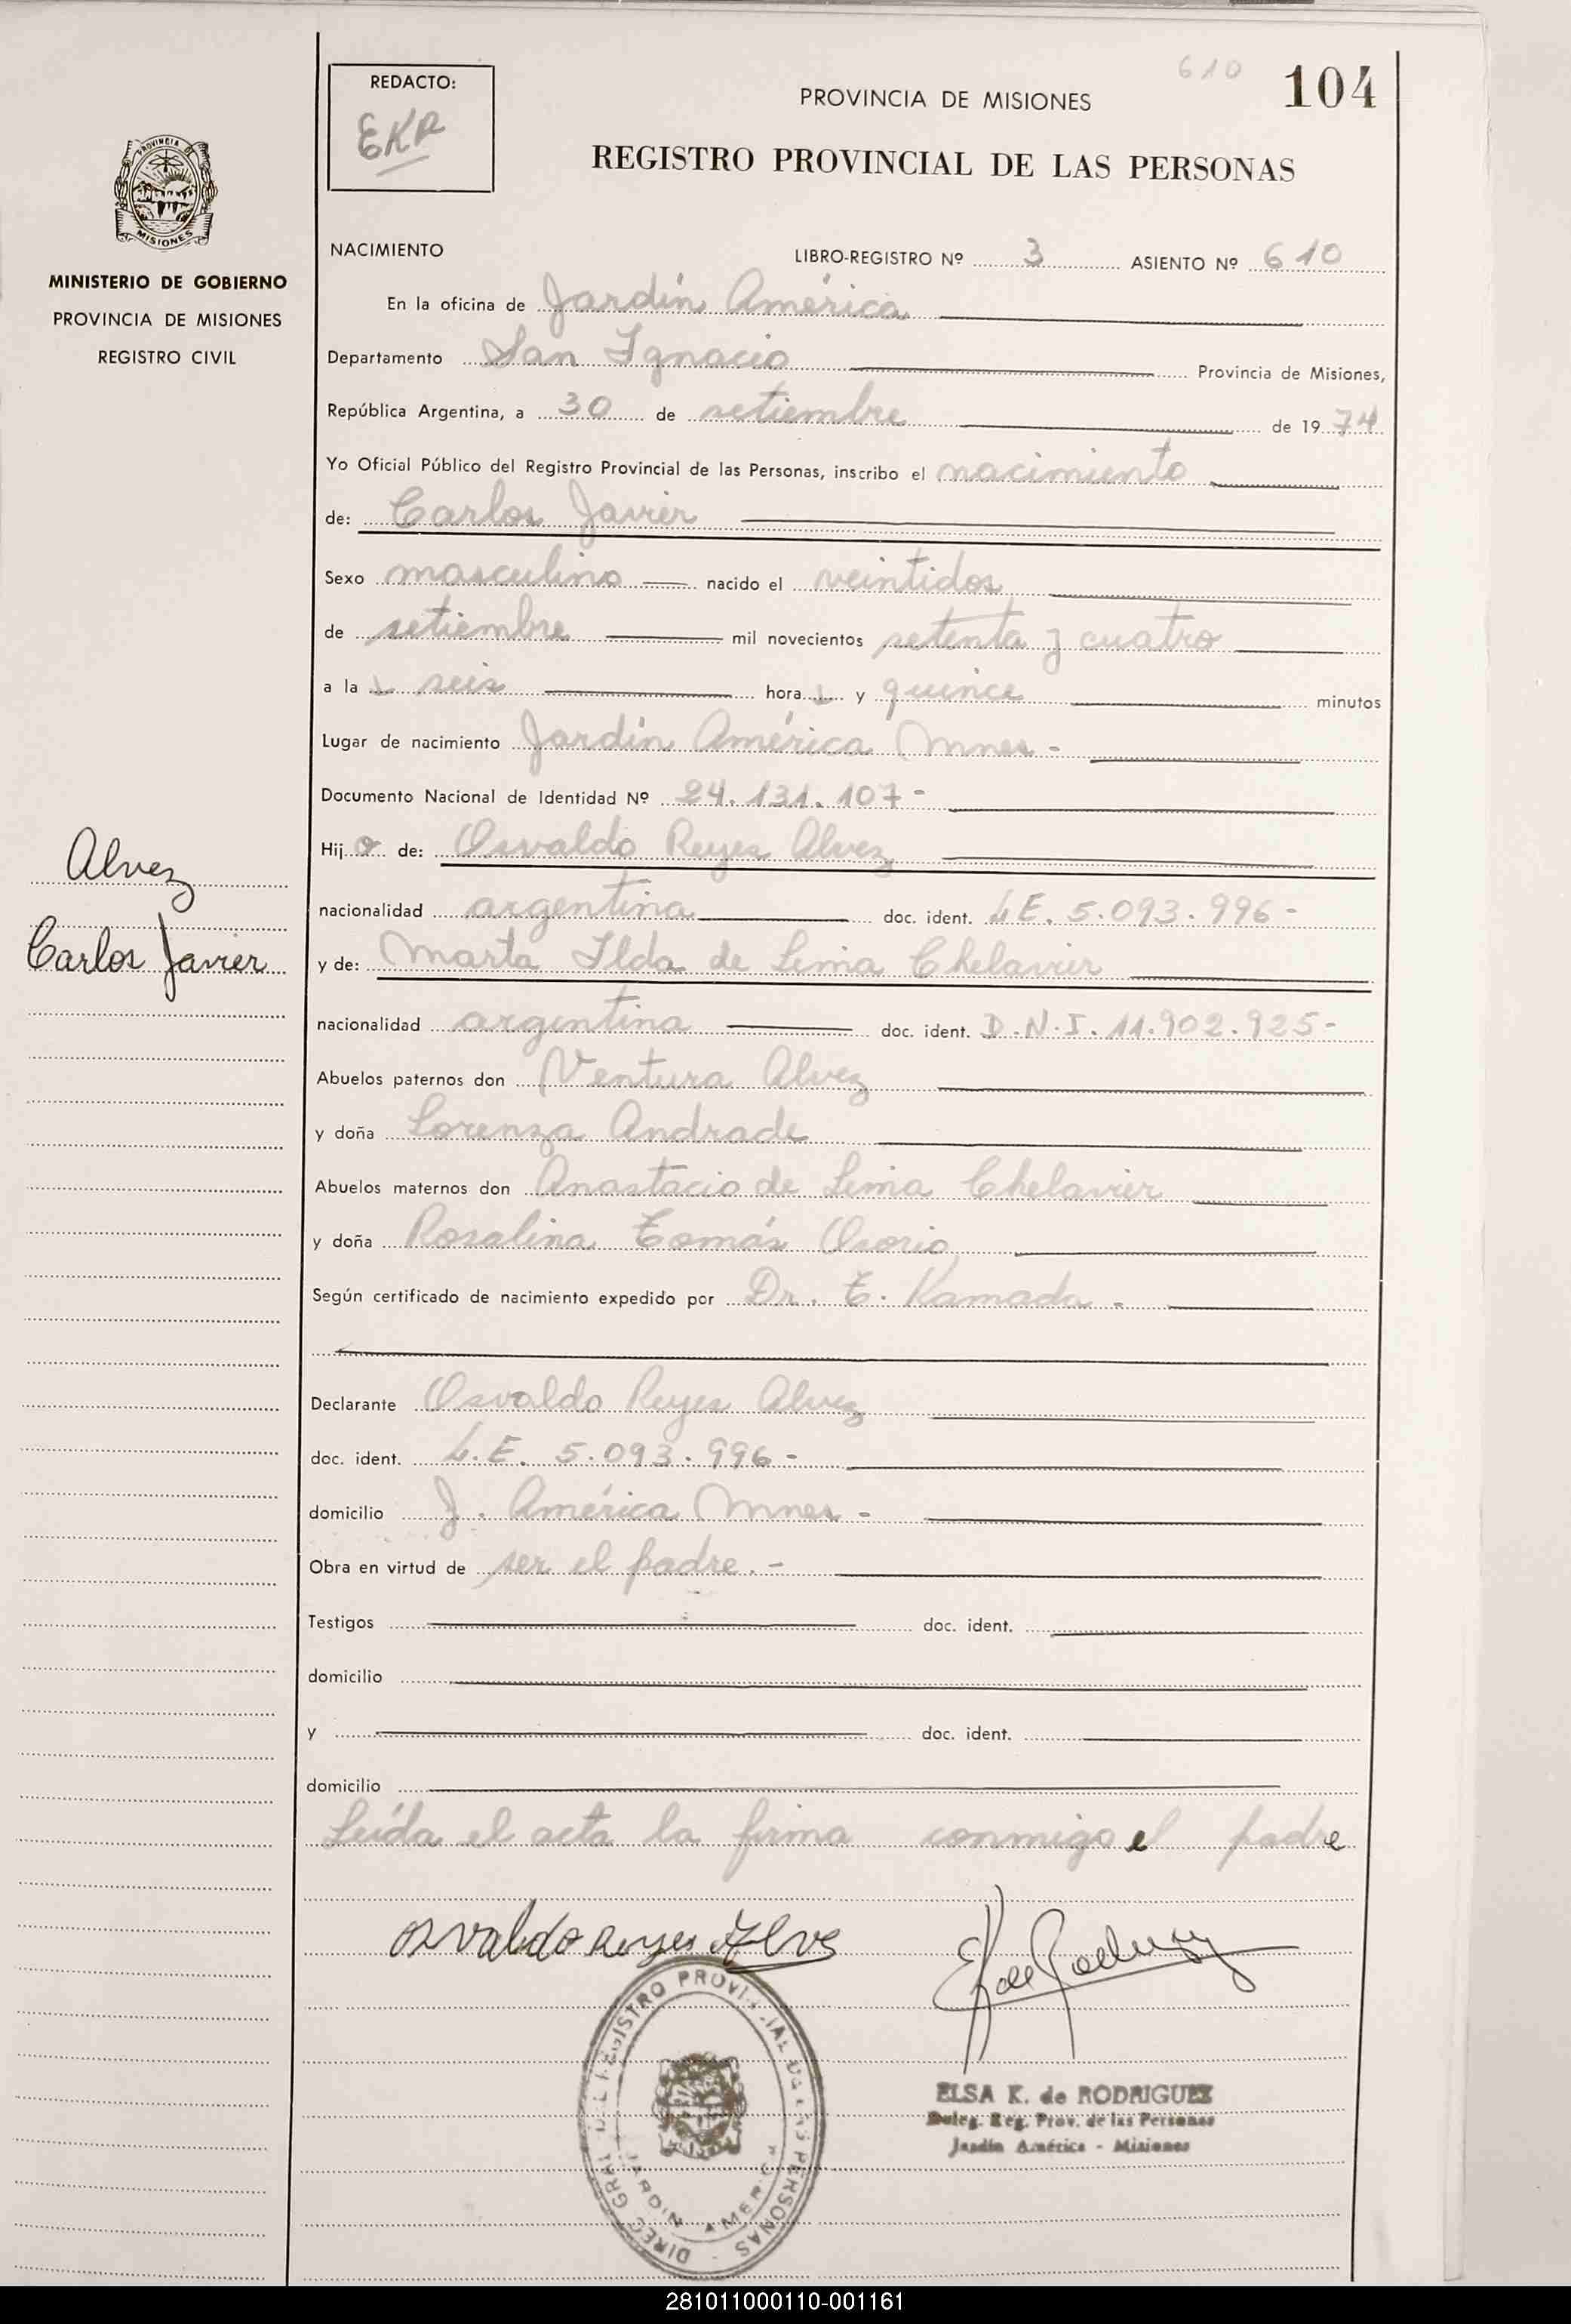 610
104
REDACTO:
EKR
PROVINCIA DE MISIONES
REGISTRO PROVINCIAL DE LAS PERSONAS
PROVINCIA DE
MISIONES
MINISTERIO DE GOBIERNO
PROVINCIA DE MISIONES
REGISTRO CIVIL
NACIMIENTO LIBRO-REGISTRO Nº 3 ASIENTO Nº 610
En la oficina de Jardín América
Departamento San Ignacio Provincia de Misiones,
República Argentina, a 30 de setiembre de 1974
Yo Oficial Público del Registro Provincial de las Personas, inscribo el nacimiento
de: Carlos Javier
Sexo masculino nacido el veintidos
de setiembre mil novecientos setenta y cuatro
a las seis horas y quince minutos
Lugar de nacimiento Jardín América Mnes -
Documento Nacional de Identidad Nº 24.131.107-
Hijo de: Osvaldo Reyes Alvez
nacionalidad argentina doc. ident. L.E. 5.093.996-
y de: Marta Ilda de Lima Chelavier
nacionalidad argentina doc. ident. D.N.I. 11.902.925-
Abuelos paternos don Ventura Alvez
y doña Lorenza Andrade
Abuelos maternos don Anastacio de Lima Chelavier
y doña Rosalina Tomás Osorio
Según certificado de nacimiento expedido por Dr. T. Kamada -
Declarante Osvaldo Reyes Alvez
doc. ident. L.E. 5.093.996-
domicilio J. América Mnes -
Obra en virtud de ser el padre.-
Testigos doc. ident.
domicilio
y doc. ident.
domicilio
Leída el acta la firma conmigo el padre
Alvez
Carlos Javier
Osvaldo Reyes Alves
E K de Rodriguez
DIREC. GRAL. DEL REGISTRO PROVINCIAL DE LAS PERSONAS
JARDIN AMERICA
ELSA K. de RODRIGUEZ
Deleg. Reg. Prov. de las Personas
Jardín América - Misiones
281011000110-001161